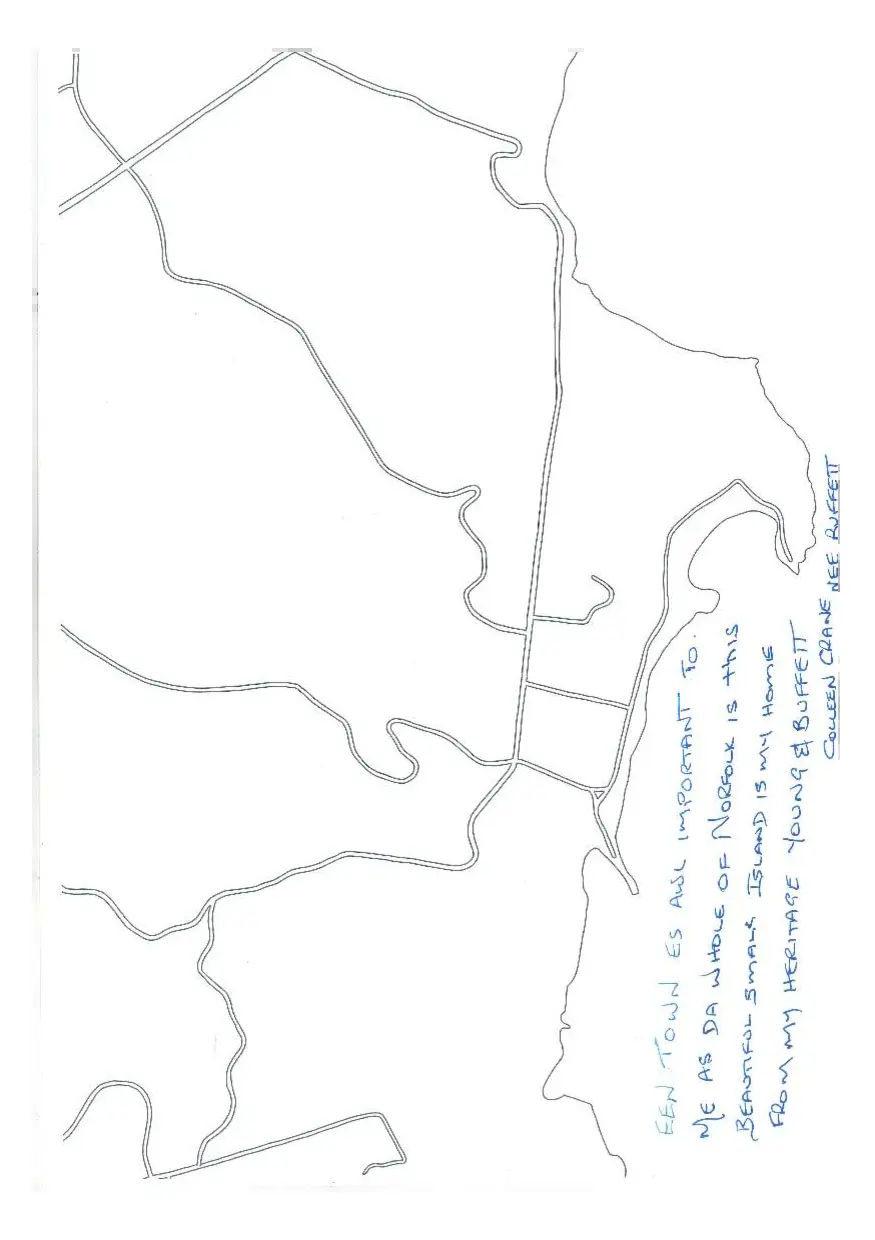 EEN TOWN ES AWL IMPORTANT TO.
ME AS DA WHOLE OF NORFOLK IS THIS
BEAUTIFUL SMALL ISLAND IS MY HOME
FROM MY HERITAGE YOUNG & BUFFETT
COLLEEN CRANE NEE BUFFETT